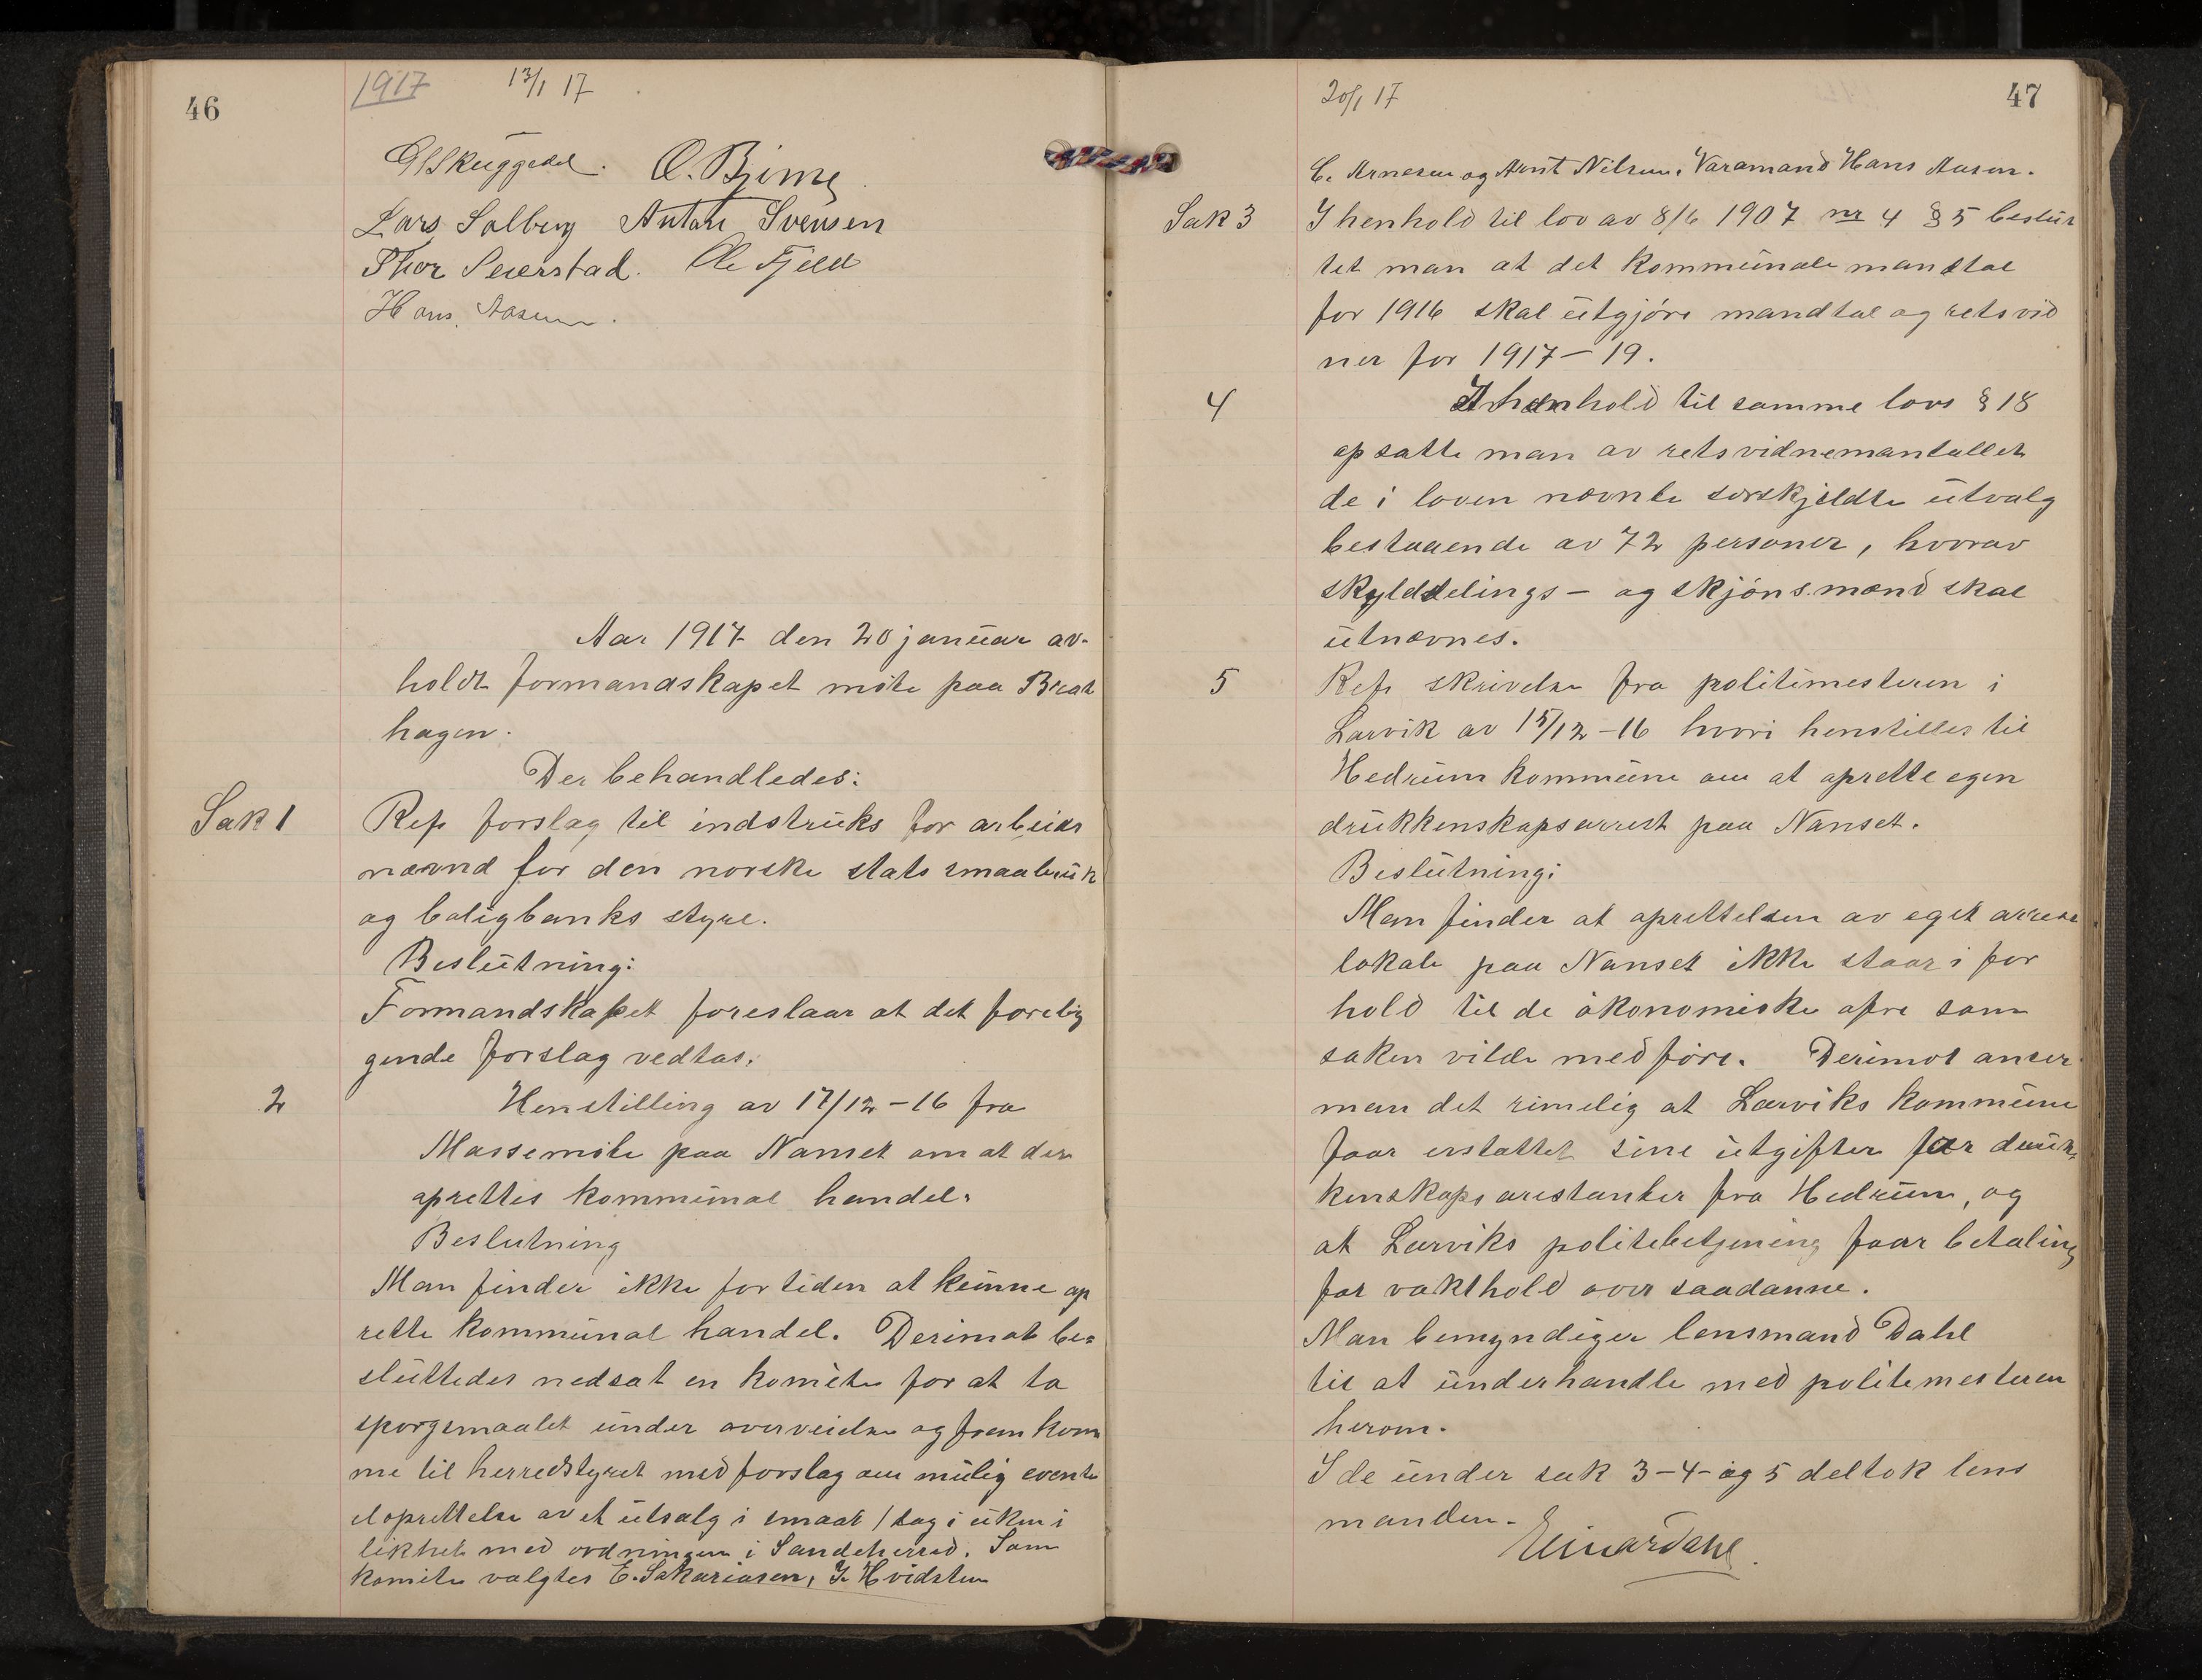 46
1917 13/1 17
O. Bjerne
Lars Solberg Anton Svensen
Thor Seierstad. Ole Fjeld
Hans Aasen.
Aar 1917 den 20 januar av-
holdt formandskapet møte paa Brat
hagen.
Der behandledes:
Sak 1 Rep forslag til indstruks for arbeids
nævnd for den norske stats smaabruk
og boligbanks styre.
Beslutning:
Formandskapet foreslaar at det forelig
gende forslag vedtas.
2 Henstilling av 17/12-16 fra
Massemøte paa Nanset om at der
oprettes kommunal handel.
Beslutning
Man finder ikke for tiden at kunne op
rette kommunal handel. Derimot be=
sluttedes nedsat en komite for at ta
spørgsmaalet under overveielse og frem kom
me til herredstyret med forslag om mulig event
el oprettelse av et utsalg i smaat 1 dag i uken i
likhet med ordningen i Sandeherred. Som
komite valgtes E. Sakariasen, J. Hvidsten
20/1 17 47
C. Arnesen og Arnt Nilsen. Varamand Hans Aasen.
Sak 3 I henhold til lov av 8/6 1907 nr 4 § 5 beslut
tet man at det kommunale mandtal
for 1916 skal utgjøre mandtal og retsvid
ner for 1917-19.
4 I henhold til samme lovs § 18
opsatte man av retsvidnemantallet
de i loven nævnte særskjeldte utvalg
bestaaende av 72 personer, hvorav
skylddelings- og skjønsmænd skal
utnævnes.
5 Rep skrivelse fra politimesteren i
Larvik av 15/12-16 hvori henstilles til
Hedrum kommune om at oprette egen
drukkenskapsarrest paa Nanset.
Beslutning:
Man finder at oprettelsen av eget arrest
lokale paa Nanset ikke staar i for
hold til de økonomiske ofre som
saken vilde medføre. Derimot anser
man det rimelig at Larviks kommune
faar erstattet sine utgifter for druk
kenskapsarestanter fra Hedrum, og
at Larviks politibetjening faar betaling
for vakthold over saadanne.
Man bemyndiger lensmand Dahl
til at underhandle med politimesteren
herom.
I de under sak 3-4-og 5 deltok lens
manden.
Einar Dahl.